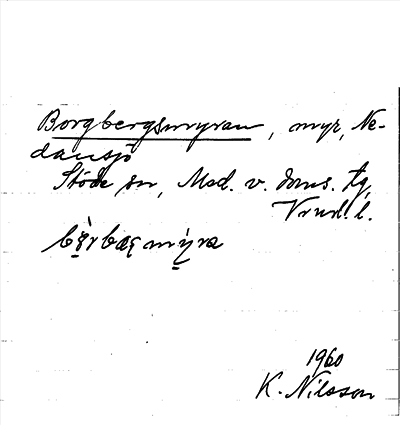 Borgbergsmyran, myr, Ne-
dansjö
Stöde sn, Med. v. doms. tg,
Vnrd. l.
bo̤rbæṣmy̤ra
1960
K. Nilsson